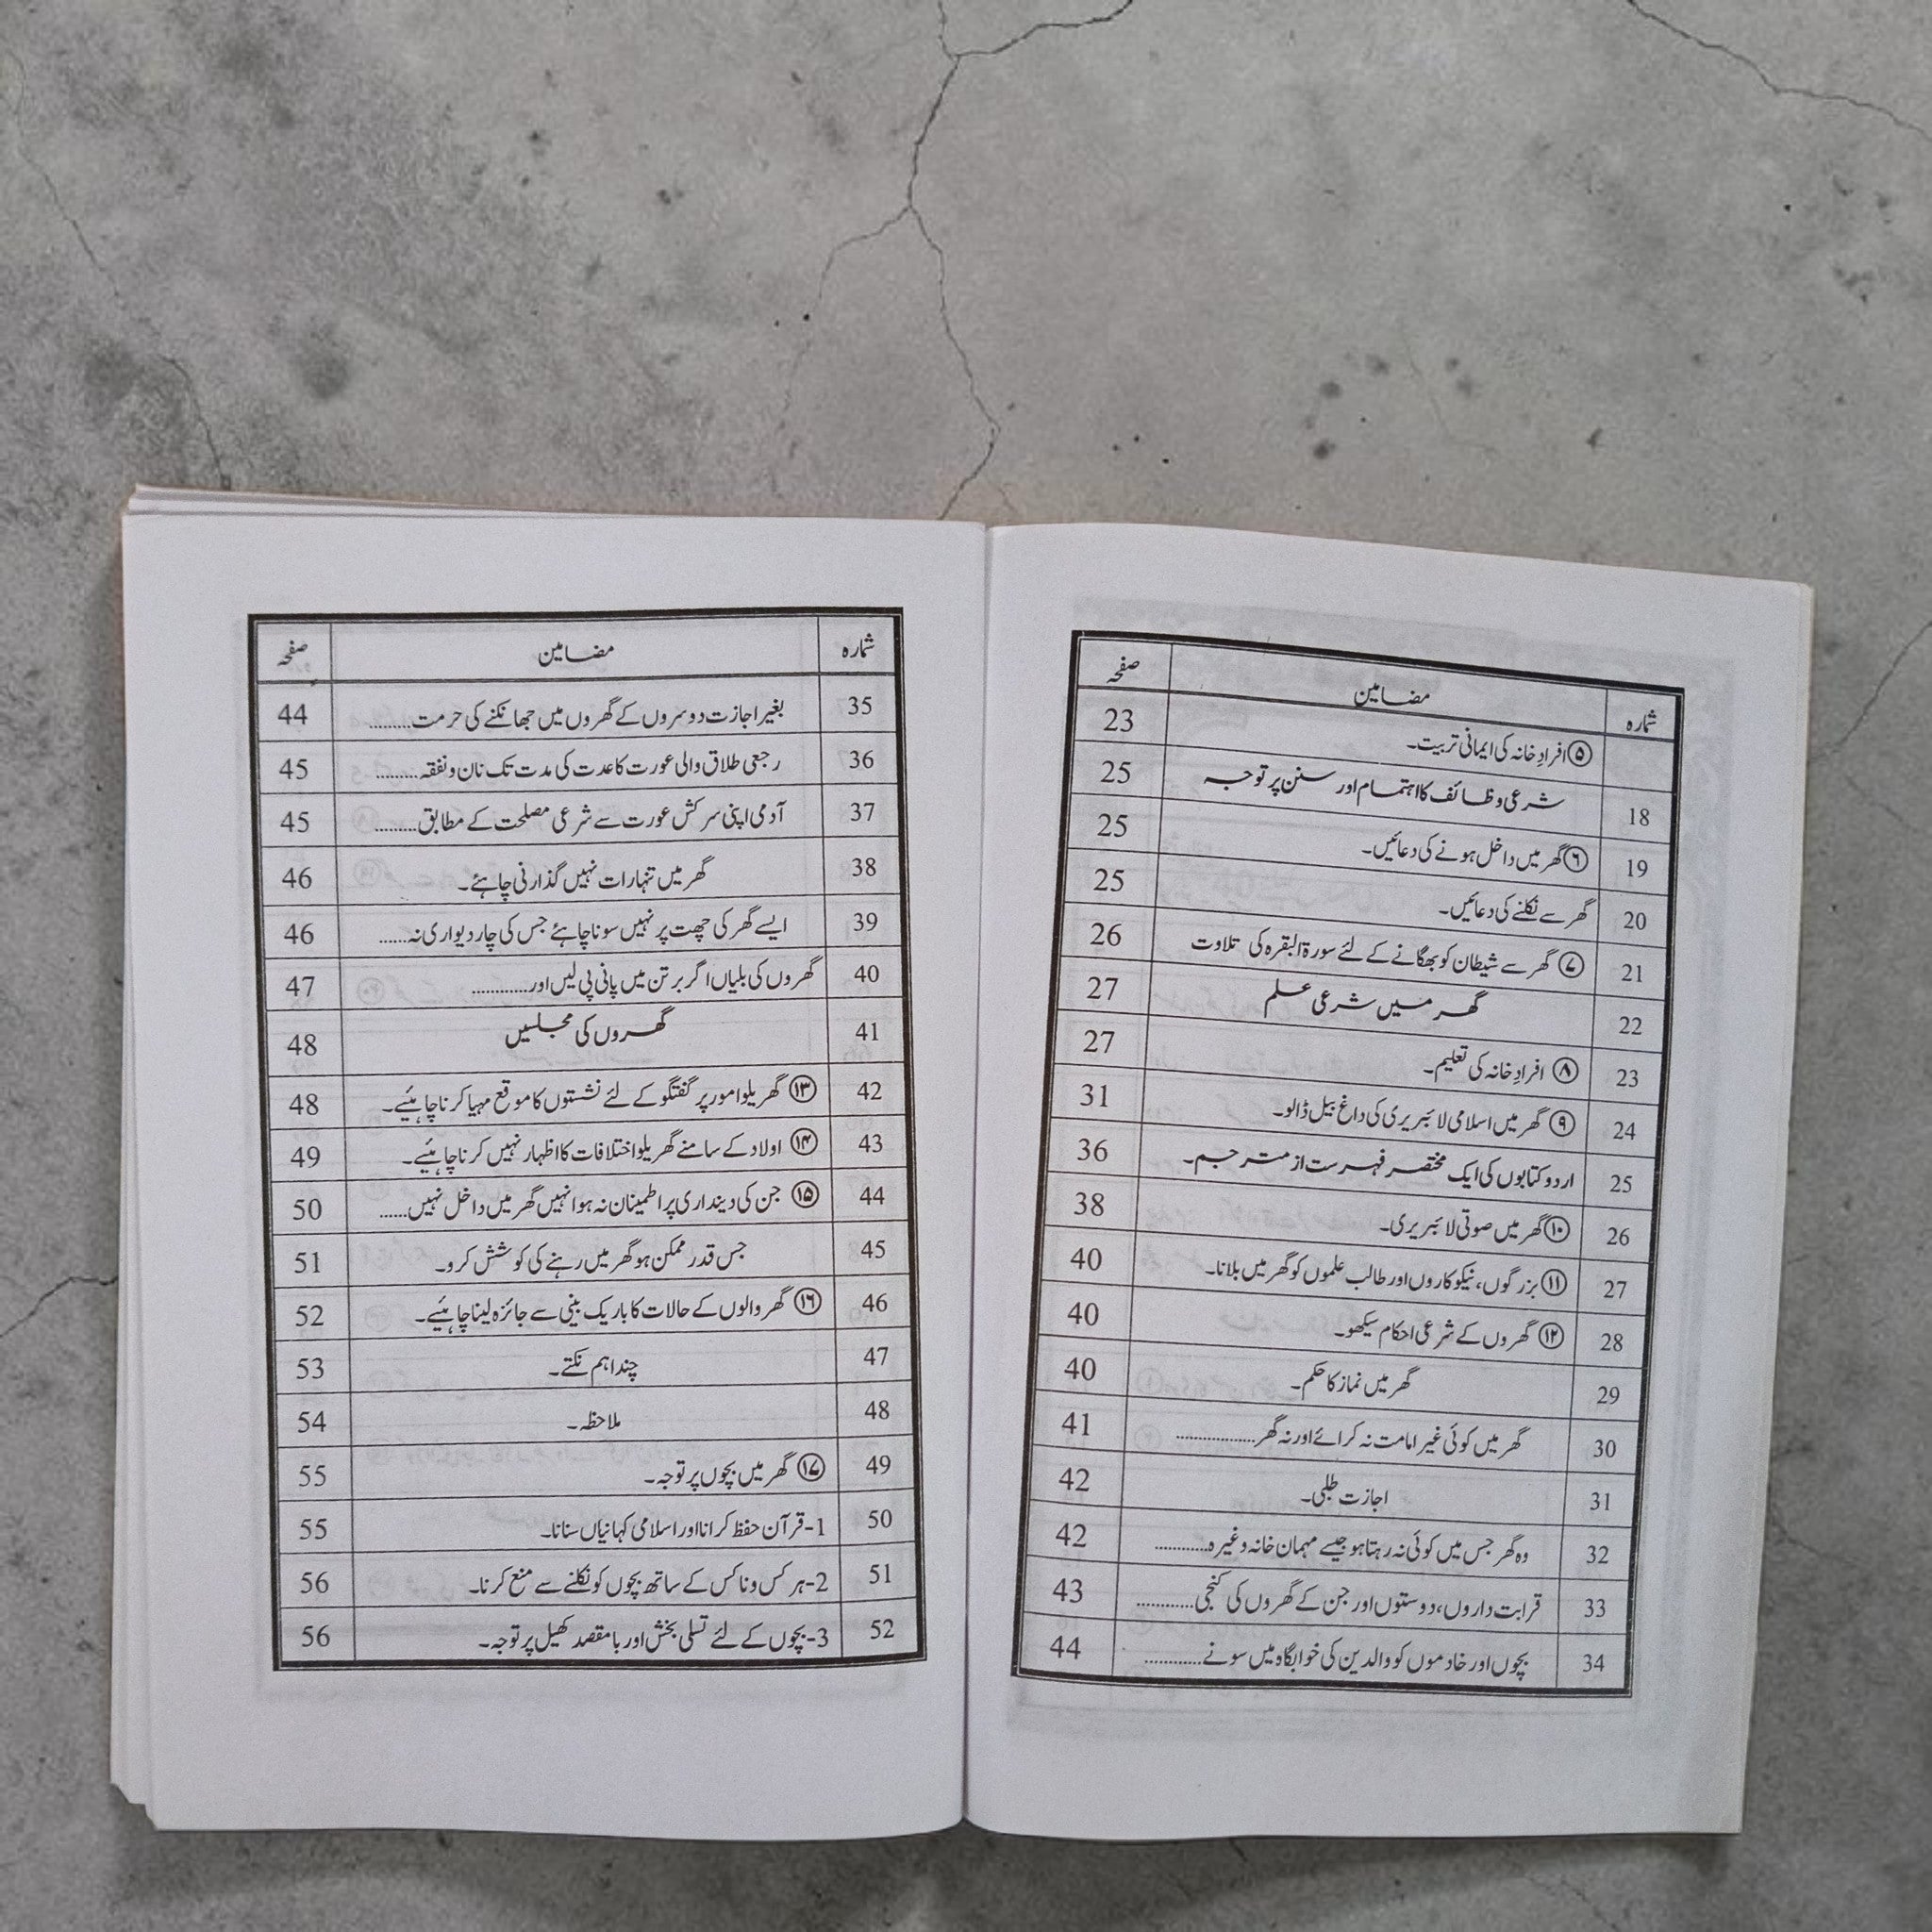 شمارہ مضامین صفحہ
⑤ افرادِ خانہ کی ایمانی تربیت۔ 23
18 شرعی وظائف کا اہتمام اور سنن پر توجہ 25
19 ⑥ گھر میں داخل ہونے کی دعائیں۔ 25
20 گھر سے نکلنے کی دعائیں۔ 25
21 ⑦ گھر سے شیطان کو بھگانے کے لئے سورۃ البقرہ کی تلاوت 26
22 گھر میں شرعی علم 27
23 ⑧ افرادِ خانہ کی تعلیم۔ 27
24 ⑨ گھر میں اسلامی لائبریری کی داغ بیل ڈالو۔ 31
25 اردو کتابوں کی ایک مختصر فہرست از مترجم۔ 36
26 ⑩ گھر میں صوتی لائبریری۔ 38
27 ⑪ بزرگوں، نیکوکاروں اور طالب علموں کو گھر میں بلانا۔ 40
28 ⑫ گھروں کے شرعی احکام سیکھو۔ 40
29 گھر میں نماز کا حکم۔ 40
30 گھر میں کوئی غیر امامت نہ کرائے اور نہ گھر................. 41
31 اجازت طلبی۔ 42
32 وہ گھر جس میں کوئی نہ رہتا ہو جیسے مہمان خانہ وغیرہ........... 42
33 قرابت داروں، دوستوں اور جن کے گھروں کی کنجی............ 43
34 بچوں اور خادموں کو والدین کی خوابگاہ میں سونے............ 44
شمارہ مضامین صفحہ
35 بغیر اجازت دوسروں کے گھروں میں جھانکنے کی حرمت......... 44
36 رجعی طلاق والی عورت کا عدت کی مدت تک نان و نفقہ......... 45
37 آدمی اپنی سرکش عورت سے شرعی مصلحت کے مطابق......... 45
38 گھر میں تنہا رات نہیں گذارنی چاہئے۔ 46
39 ایسے گھر کی چھت پر نہیں سونا چاہئے جس کی چار دیواری نہ...... 46
40 گھروں کی بلیاں اگر برتن میں پانی پی لیں اور............ 47
41 گھروں کی مجلسیں 48
42 ⑬ گھریلو امور پر گفتگو کے لئے نشستوں کا موقع مہیا کرنا چاہئیے۔ 48
43 ⑭ اولاد کے سامنے گھریلو اختلافات کا اظہار نہیں کرنا چاہئیے۔ 49
44 ⑮ جن کی دینداری پر اطمینان نہ ہو انہیں گھر میں داخل نہیں...... 50
45 جس قدر ممکن ہو گھر میں رہنے کی کوشش کرو۔ 51
46 ⑯ گھر والوں کے حالات کا باریک بینی سے جائزہ لینا چاہئیے۔ 52
47 چند اہم نکتے۔ 53
48 ملاحظہ۔ 54
49 ⑰ گھر میں بچوں پر توجہ۔ 55
50 1-قرآن حفظ کرانا اور اسلامی کہانیاں سنانا۔ 55
51 2-ہر کس و ناکس کے ساتھ بچوں کو نکلنے سے منع کرنا۔ 56
52 3-بچوں کے لئے تسلی بخش اور با مقصد کھیل پر توجہ۔ 56